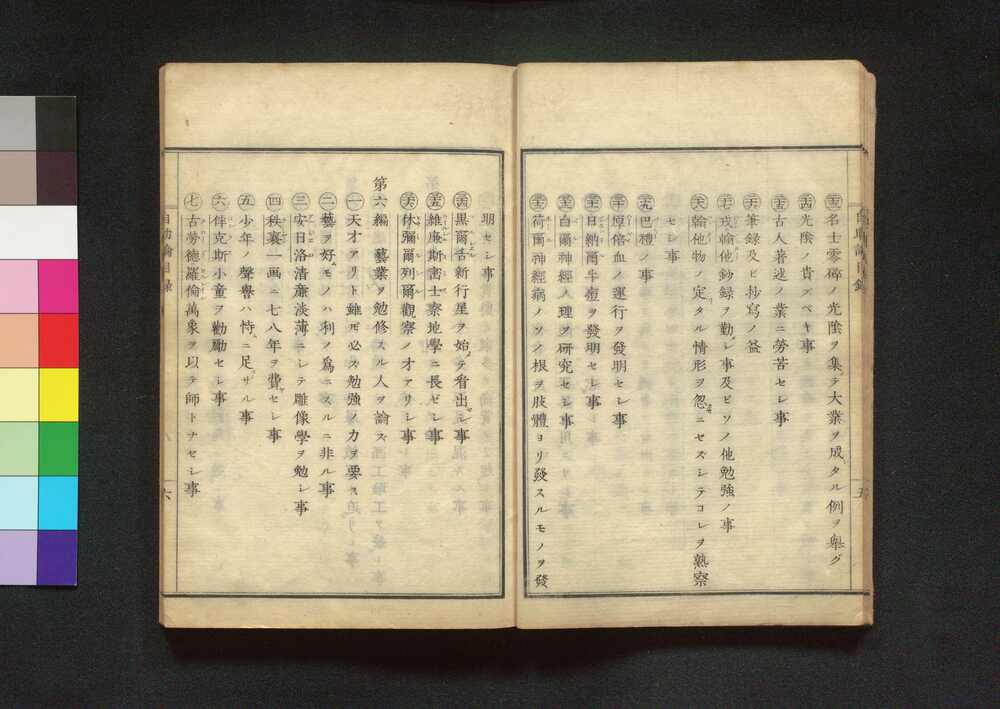 名士零碎ノ光陰ヲ集テ大業ヲ成タル例ヲ擧グ
光陰ノ貴ブベキ事
古人著述ノ業ニ勞苦セシ事
筆錄及ビ抄寫ノ益
戎翰他鈔録ヲ勤シ事及ビソノ他勉強ノ事
翰他物ノ定リタル情形ヲ忽ニセズシテコレヲ熟察
セシ事
巴禮ノ事
厚倍血ノ運行ヲ發明セシ事
日納爾牛痘ヲ發明セシ事
白爾神經ノ理ヲ研究セシ事
荷爾神經病ノソノ根ヲ肢體ヨリ發スルモノヲ發
明セシ事
黒爾舌新行星ヲ始テ看出セシ事
維廉斯密士察地學ニ長ゼシ事
休彌爾列爾觀察ノ才アリシ事
第六編 藝業ヲ勉修スル人ヲ論ズ
一 天才アリト雖モ必ズ勉強ノ力ヲ要ス
二 藝ヲ好モノハ利ヲ爲ニスルニ非ル事
三 安日洛清廉淡薄ニシテ雕像學ヲ勉シ事
四 秩襄一画ニ七八年ヲ費セシ事
五 少年ノ聲譽ハ恃ニ足ザル事
六 伴克斯小童ヲ勸勵セシ事
七 古勞徳羅倫萬象ヲ以テ師トナセシ事
自助論目録
六